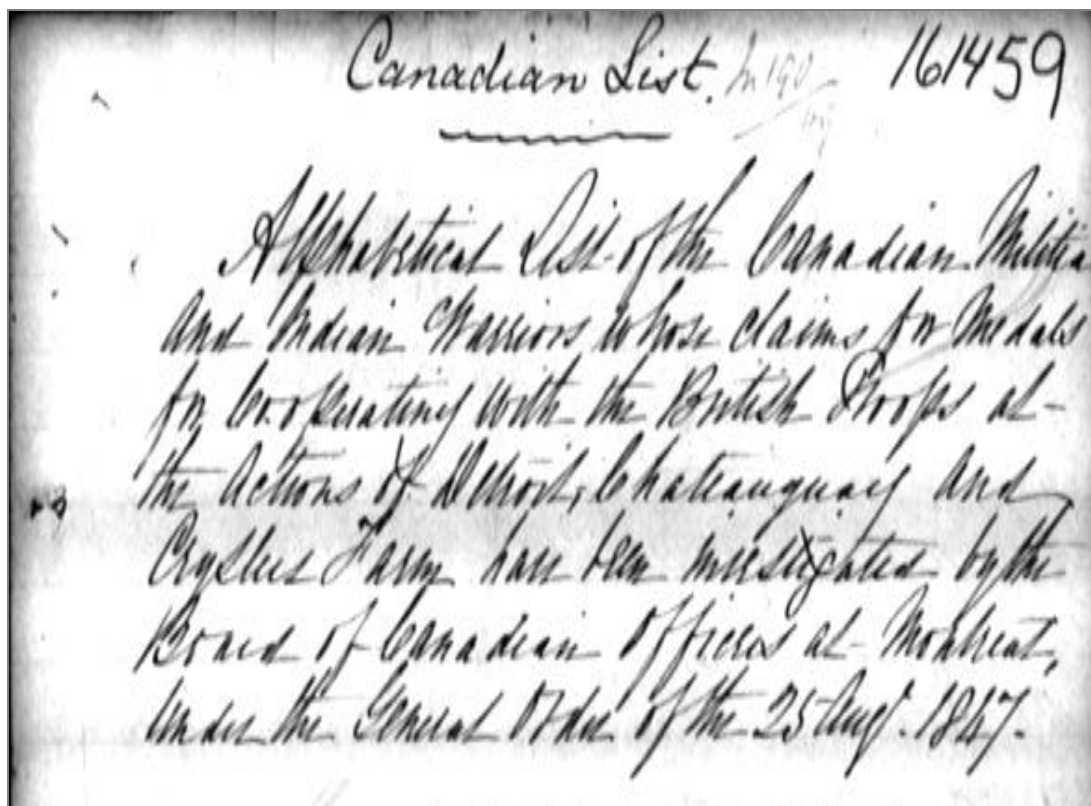 Canadian List. 161459
Alphabetical List of the Canadian Militia
and Indian Warriors whose claims for Medals
for Cooperating with the British Troops at
the Actions of Detroit, Chateauguay and
Cryslers Farm have been investigated by the
Board of Canadian Officers at Montreal,
under the General Order of the 25 Augt. 1847.